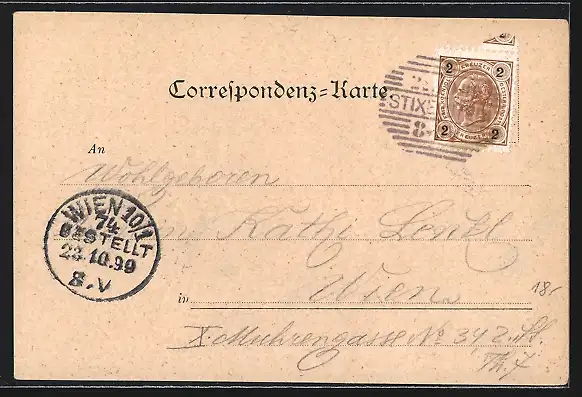 Correspondenz-Karte.
2 KREUZER 2
STIXE
8-
2 2
An
Wohlgeboren
Kathi
Wien
in
X. Muhrengasse No 34 2. St.
Th. 7
18.-
WIEN 10/1
74
BESTELLT
23.10.99
8.V